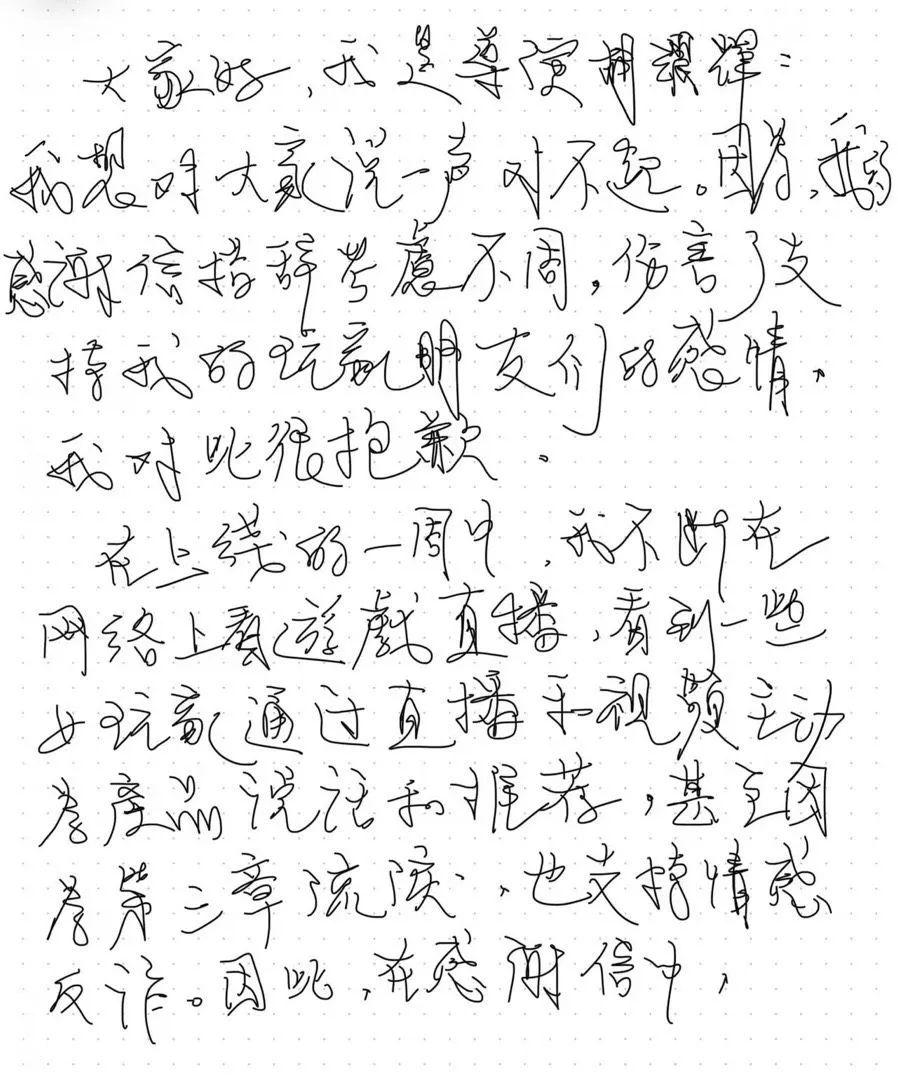 大家好,我是導演胡罧輝:
我想对大家说一声对不起。因为,我的
感謝信措辞考慮不周,伤害了支
持我的玩家朋友们的感情,
我对此很抱歉.
在上线的一周中,我不断在
网络上看遊戲直播,看到一些
女玩家通过直播和视频主动
為產品说话和推荐,甚至因
為第三章流淚,也支持情感
反诈。因此,在感謝信中,